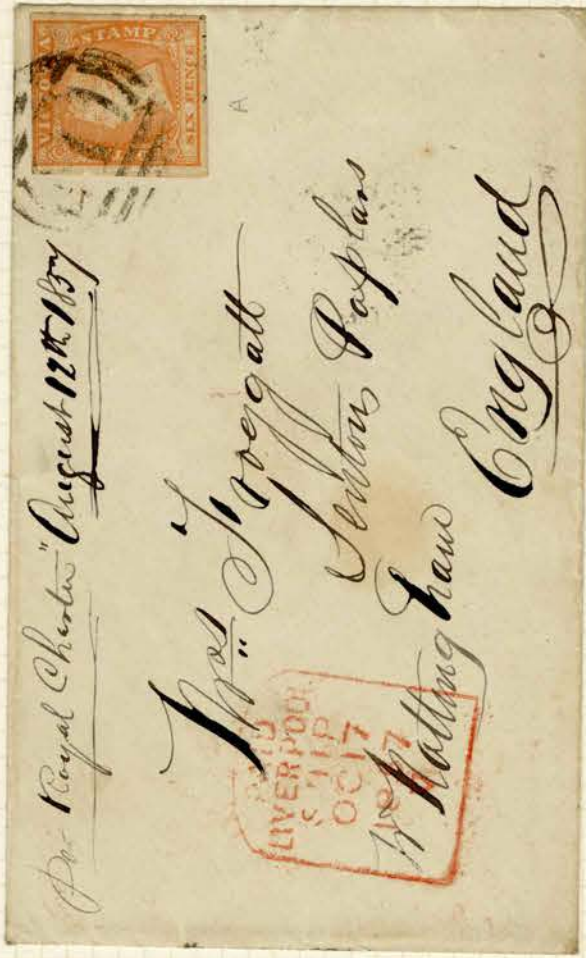 VICTORIA
STAMP
SIX PENCE
A
per "Royal Charter" August 12th 1857
Thos Froggatt
Lenton Poplars
Nr Nottingham
England
PAID
LIVERPOOL
SHIP
OC 17
1857